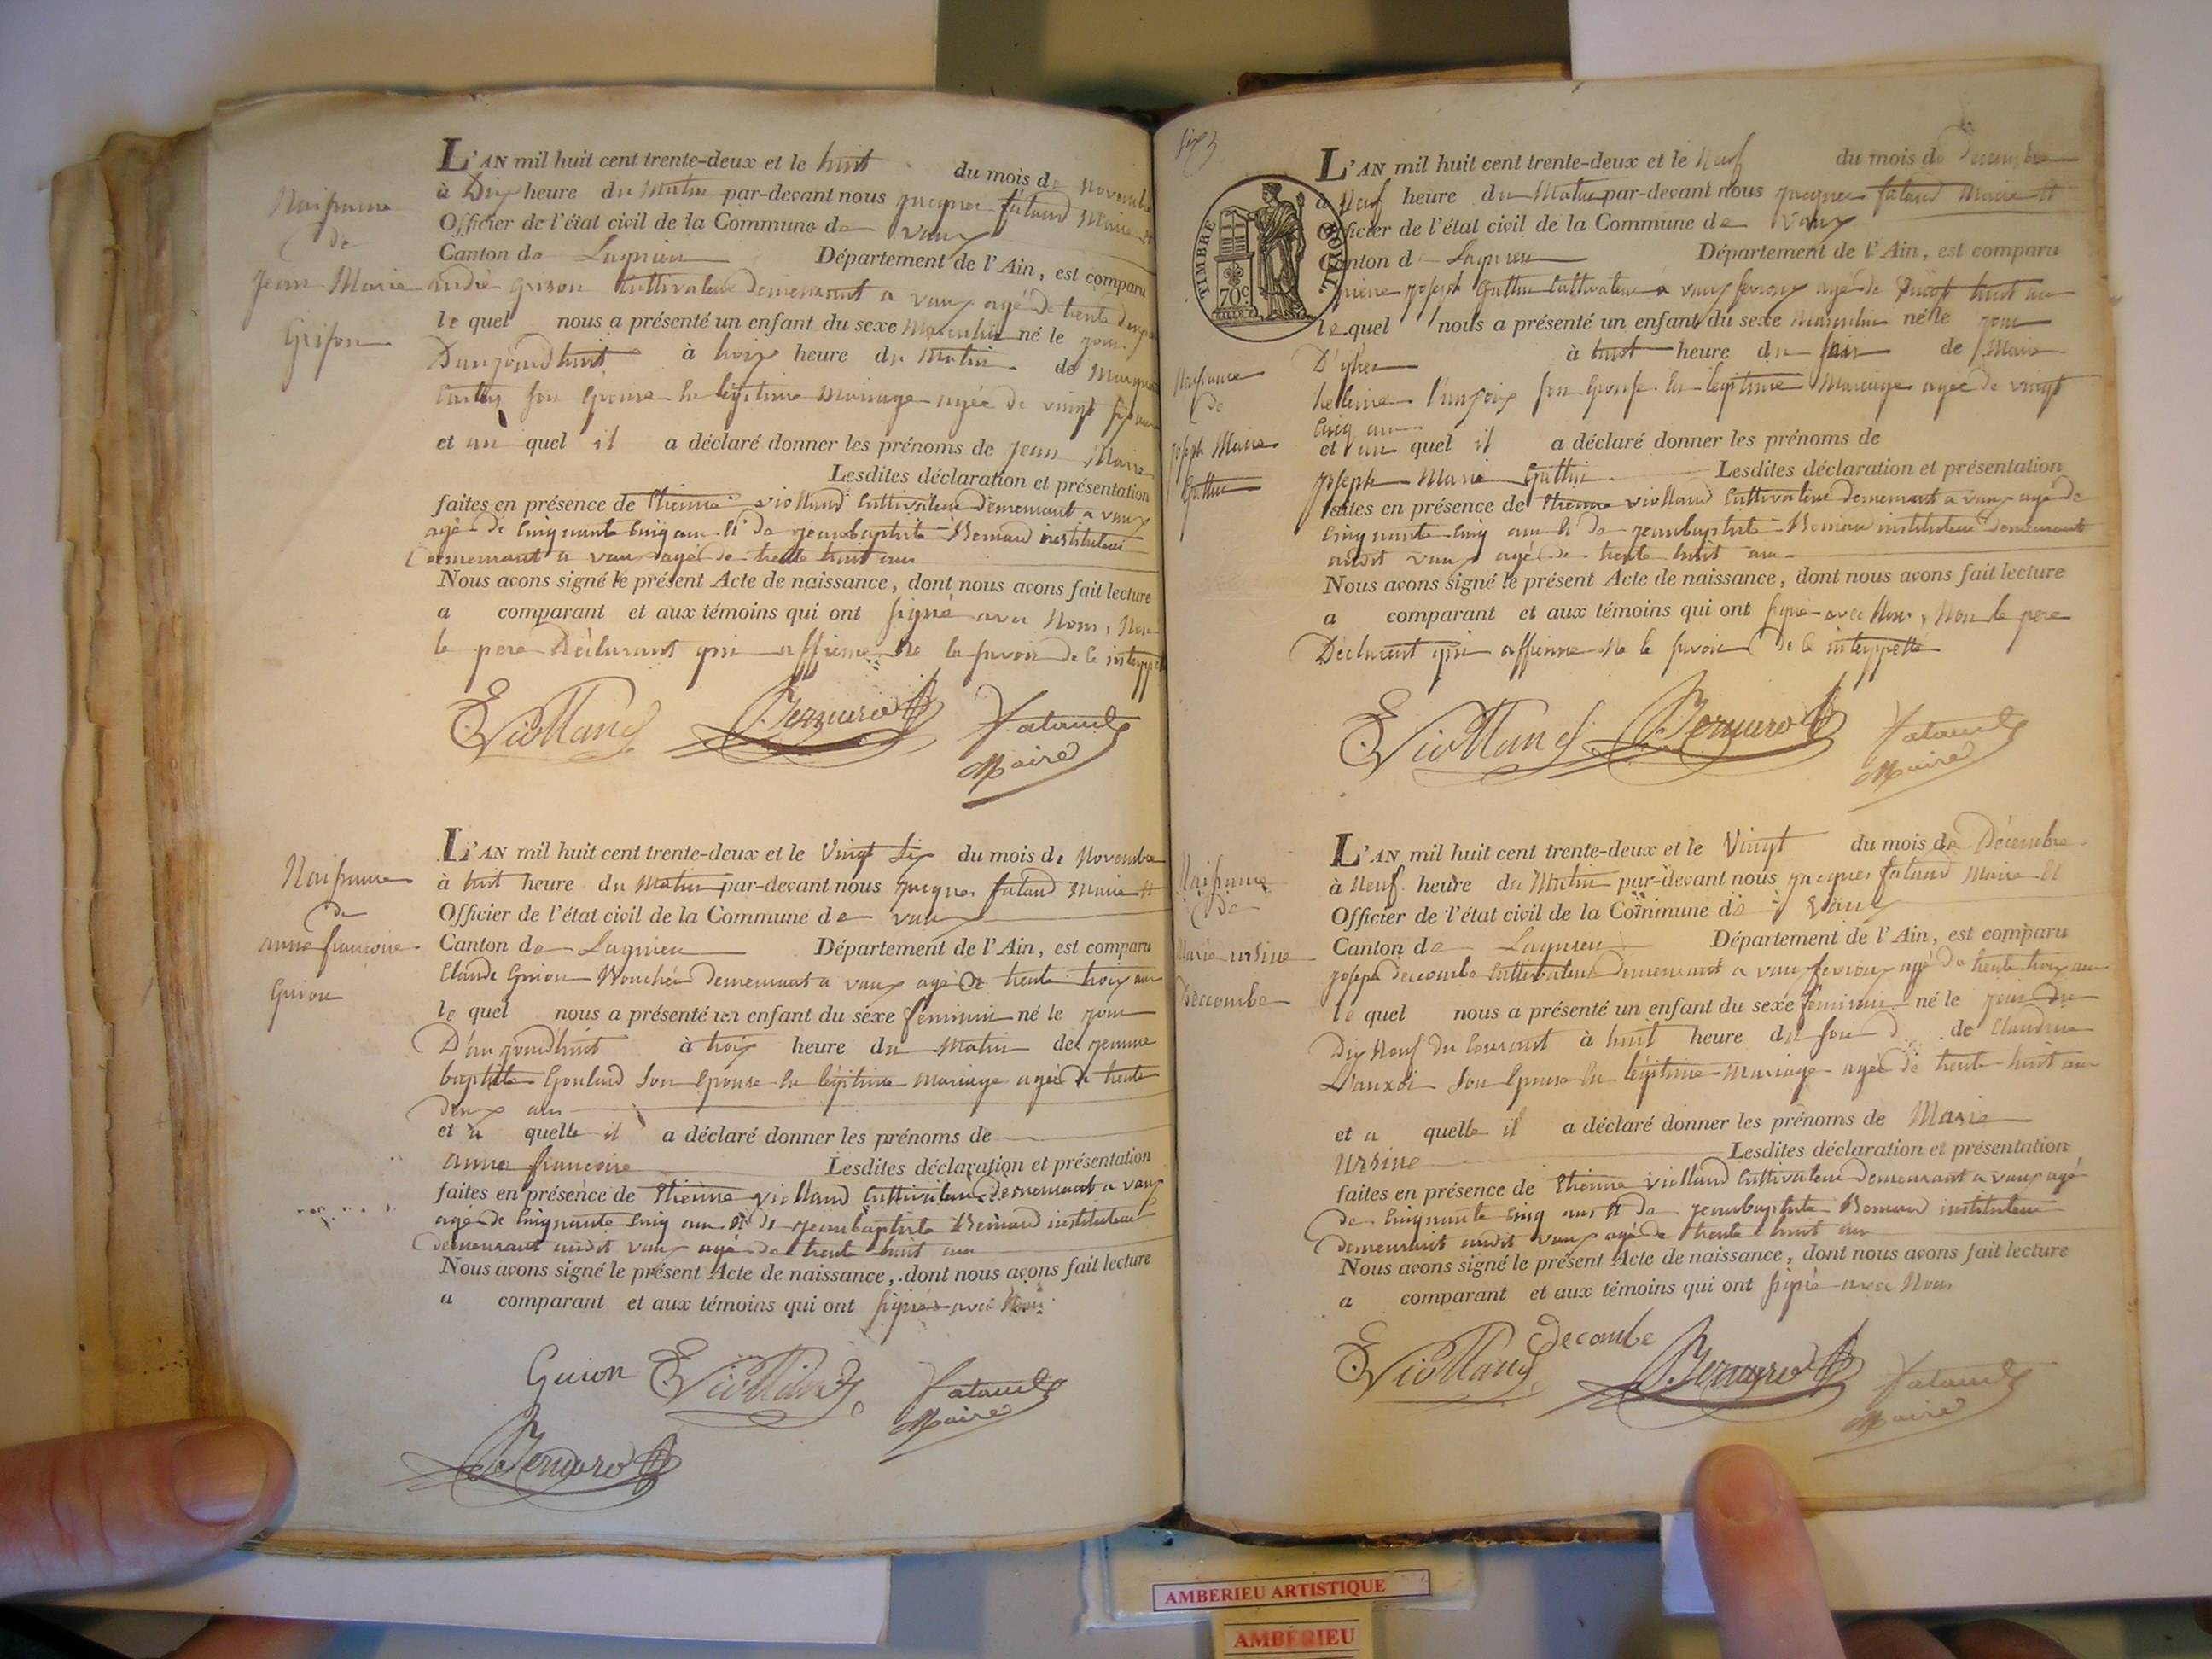 Naissance
de
Jean Marie
Grison
L'AN mil huit cent trente-deux et le huit du mois de Novembre
à Dix heure du Matin par-devant nous jacques fataud Maire et
Officier de l'état civil de la Commune de vaux
Canton de Lagnieu Département de l'Ain, est comparu
andré Grison Cultivateur demeurant a vaux agé de trente
le quel nous a présenté un enfant du sexe Masculin né le jour
Daujourdhuit à troix heure du Matin de
son Epouse En légitime Mariage agée de vingt
et au quel il a déclaré donner les prénoms de jean Marie
Lesdites déclaration et présentation
faites en présence de Etienne violland Cultivateur demeurant a vaux
agé de Cinquante Cinq ans et de jeanbaptiste Bernard instituteur
demeurant a vaux agé de trente huit ans
Nous avons signé le présent Acte de naissance, dont nous avons fait lecture
a comparant et aux témoins qui ont signé avec Nous, Non
le pere Déclarant qui affirme Ne le savoir de ce
E Violland Bernard Fataud
Maire
Naissance
de
anne francoise
Guion
L'AN mil huit cent trente-deux et le Vingt Six du mois de Novembre
à huit heure du Matin par-devant nous jacques fataud Maire et
Officier de l'état civil de la Commune de vaux
Canton de Lagnieu Département de l'Ain, est comparu
Claude Guion Bouchér demeurant a vaux agé de trente troix ans
le quel nous a présenté un enfant du sexe féminin né le jour
D'aujourdhuit à troix heure du Matin de jeanne
baptiste Goulard son Epouse En légitime Mariage agée de trente
deux ans
et a quelle il a déclaré donner les prénoms de
anne francoise Lesdites déclaration et présentation
faites en présence de Etienne violland Cultivateur demeurant a vaux
agé de Cinquante Cinq ans et de jeanbaptiste Bernard instituteur
demeurant audit vaux agé de trente huit ans
Nous avons signé le présent Acte de naissance, dont nous avons fait lecture
a comparant et aux témoins qui ont signés avec Nous
Guion E Violland Fataud
Maire
Bernard
TIMBRE ROYAL
70c
Naissance
de
joseph Marie
Guttin
L'AN mil huit cent trente-deux et le Neuf du mois de Decembre
à Neuf heure du Matin par-devant nous jacques fataud Maire et
Officier de l'état civil de la Commune de Vaux
Canton de Lagnieu Département de l'Ain, est comparu
joseph Guttin Cultivateur a vaux fevroux agé de huit ans
le quel nous a présenté un enfant du sexe Masculin né le jour
D'yher à huit heure du soir de Marie
son Epouse En légitime Mariage agée de vingt
Cinq ans
et au quel il a déclaré donner les prénoms de
joseph Marie Guttin Lesdites déclaration et présentation
faites en présence de Etienne viollaud Cultivateur demeurant a vaux agé de
Cinquante Cinq ans et de jeanbaptiste Bernard instituteur demeurant
audit vaux agé de trente huit ans
Nous avons signé le présent Acte de naissance, dont nous avons fait lecture
a comparant et aux témoins qui ont signé avec Nous, Non le pere
Déclarent qui affirme Ne le savoir de ce interppellé
E Violland Bernard Fataud
Maire
Naissance
de
Marie ursine
Decombe
L'AN mil huit cent trente-deux et le Vingt du mois de Décembre
à Neuf heure du Matin par-devant nous jacques fataud Maire et
Officier de l'état civil de la Commune de Vaux
Canton de Lagnieu Département de l'Ain, est comparu
joseph decombe Cultivateur demeurant a vaux fevroux agé de trente troix ans
le quel nous a présenté un enfant du sexe féminin né le jour du
Dix Neuf du Courrant à huit heure du soir de Claudine
son Epouse En légitime Mariage agée de trente huit ans
et a quelle il a déclaré donner les prénoms de Marie
Ursine Lesdites déclaration et présentation
faites en présence de Etienne viollaud Cultivateur demeurant a vaux agé
de Cinquante Cinq ans et de jeanbaptiste Bernard instituteur
demeurant audit vaux agé de trente huit ans
Nous avons signé le présent Acte de naissance, dont nous avons fait lecture
a comparant et aux témoins qui ont signé avec Nous
E Violland Decombe Bernard Fataud
Maire
AMBERIEU ARTISTIQUE
AMBÉRIEU